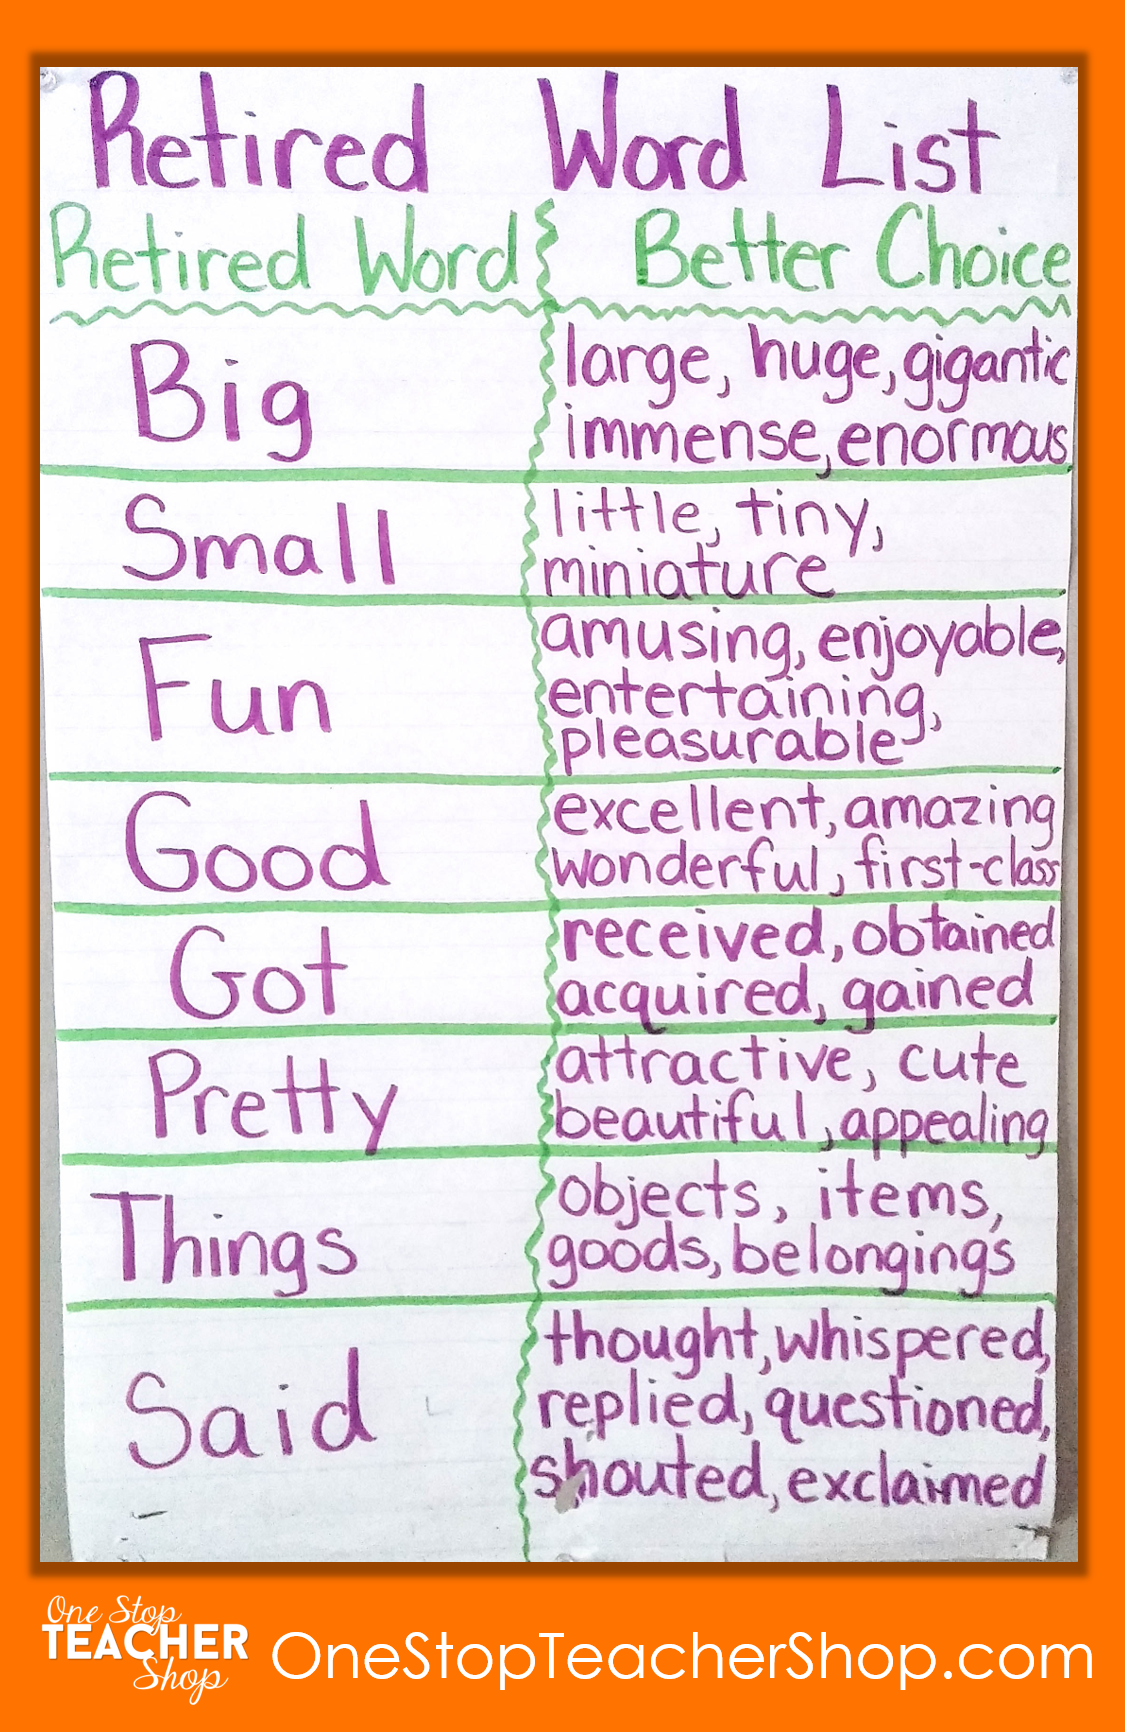 Retired Word List
Retired Word Better Choice
Big
large, huge, gigantic
immense, enormous
Small
little, tiny,
miniature
Fun
amusing, enjoyable,
entertaining,
pleasurable
Good
excellent, amazing
wonderful, first-class
Got
received, obtained
acquired, gained
Pretty
attractive, cute
beautiful, appealing
Things
objects, items,
goods, belongings
Said
thought, whispered,
replied, questioned,
shouted, exclaimed
One Stop
TEACHER
Shop
OneStopTeacherShop.com